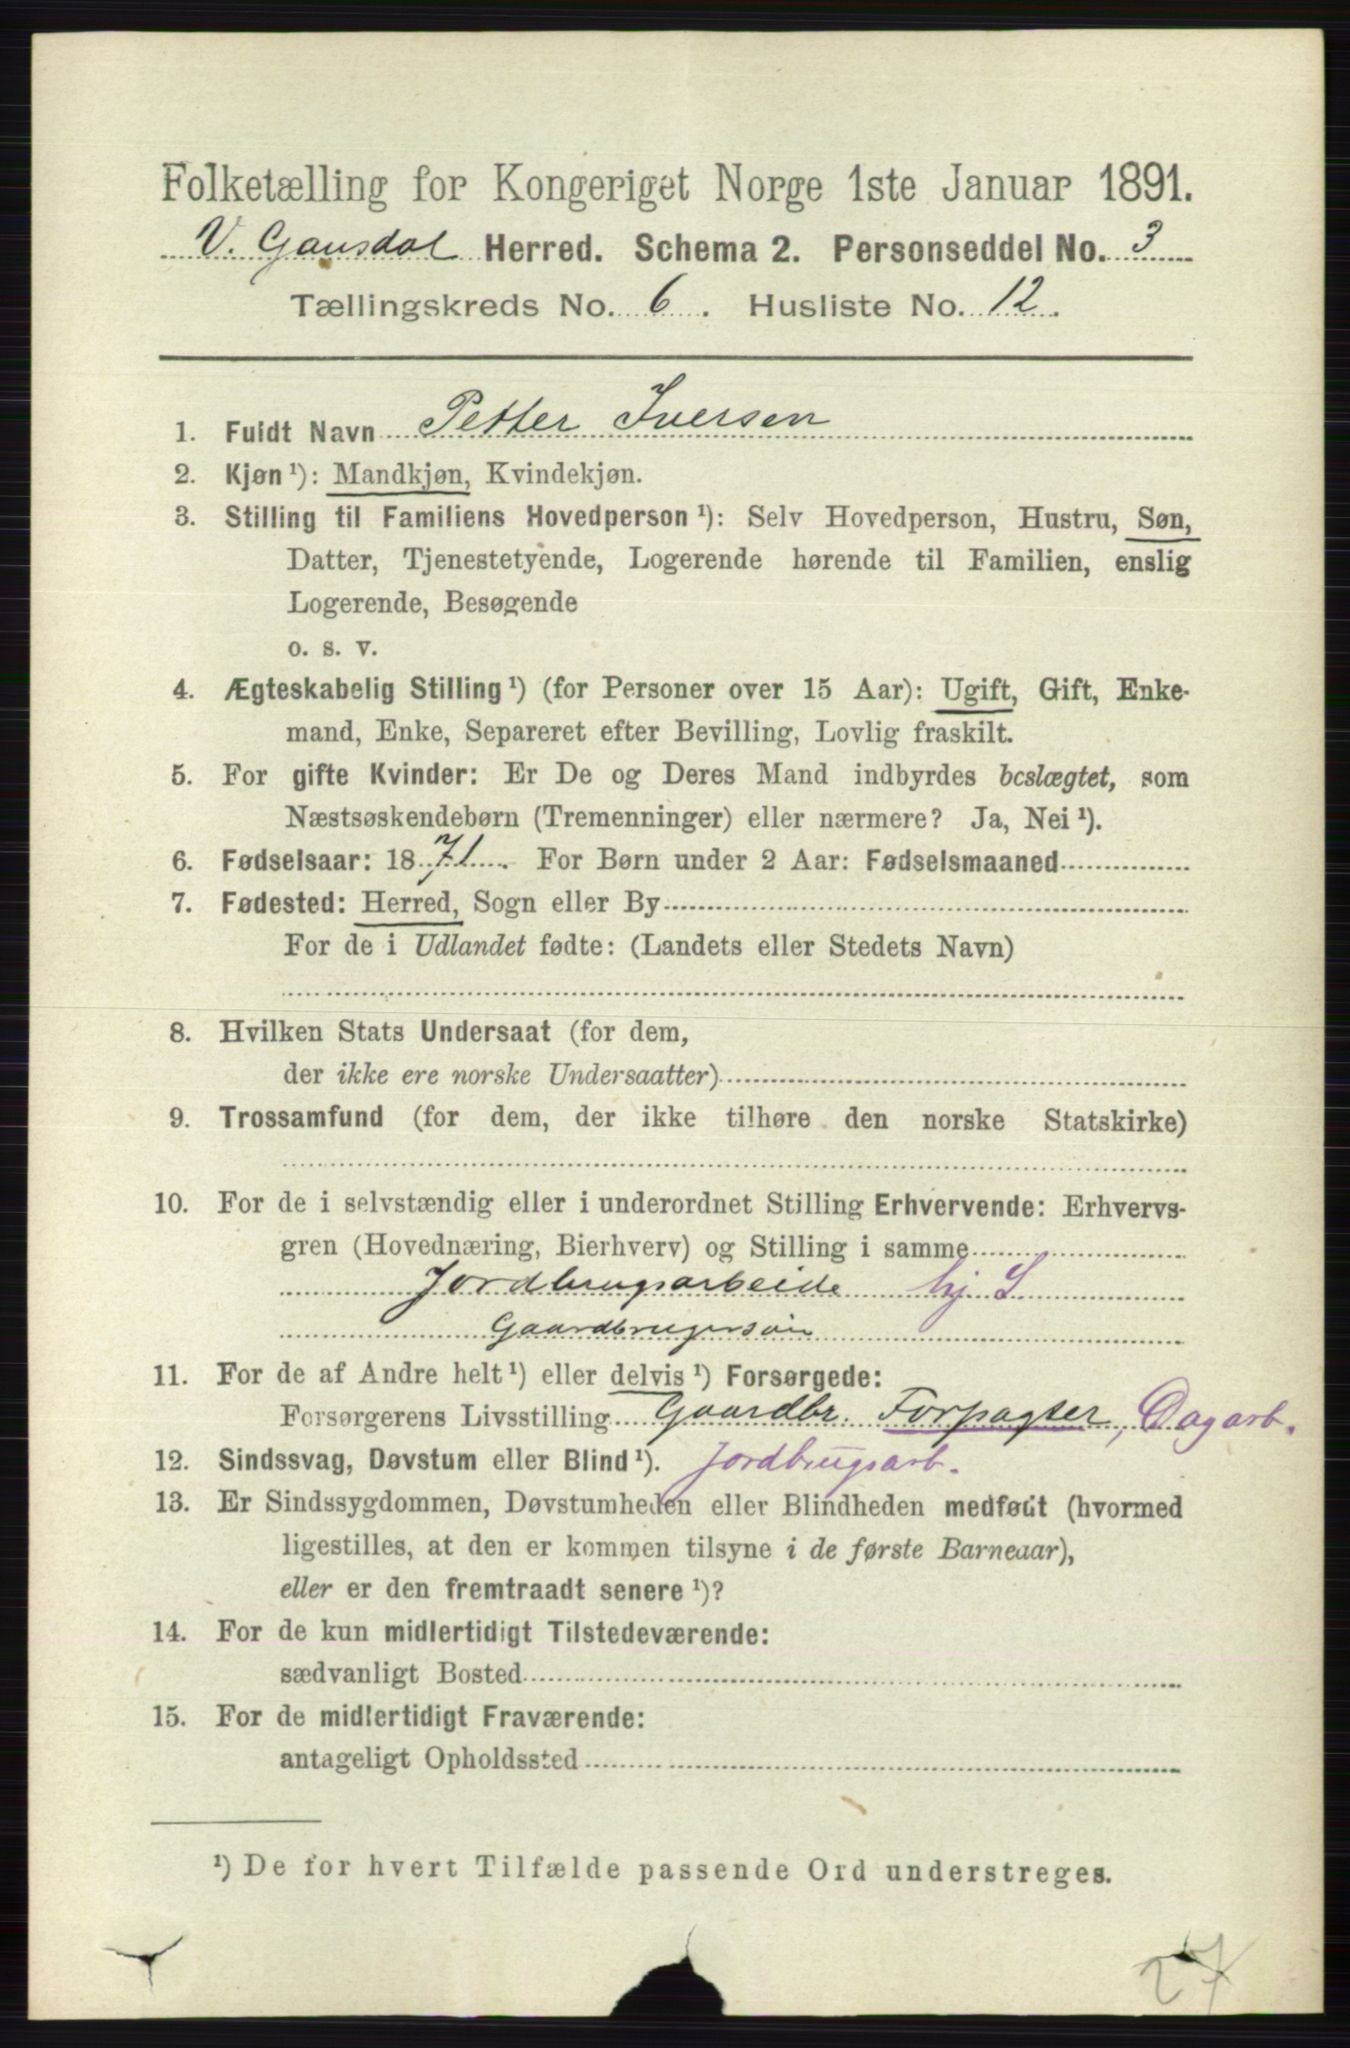 Folketælling for Kongeriget Norge 1ste Januar 1891.
V. Gausdal Herred. Schema 2. Personseddel No. 3
Tællingskreds No. 6. Husliste No. 12.
1. Fuldt Navn Petter Iversen
2. Kjøn ¹): Mandkjøn, Kvindekjøn.
3. Stilling til Familiens Hovedperson ¹): Selv Hovedperson, Hustru, Søn,
Datter, Tjenestetyende, Logerende hørende til Familien, enslig
Logerende, Besøgende
o. s. v.
4. Ægteskabelig Stilling ¹) (for Personer over 15 Aar): Ugift, Gift, Enke-
mand, Enke, Separeret efter Bevilling, Lovlig fraskilt.
5. For gifte Kvinder: Er De og Deres Mand indbyrdes beslægtet, som
Næstsøskendebørn (Tremenninger) eller nærmere? Ja, Nei ¹).
6. Fødselsaar: 1871. For Børn under 2 Aar: Fødselsmaaned
7. Fødested: Herred, Sogn eller By
For de i Udlandet fødte: (Landets eller Stedets Navn)
8. Hvilken Stats Undersaat (for dem,
der ikke ere norske Undersaatter)
9. Trossamfund (for dem, der ikke tilhøre den norske Statskirke)
10. For de i selvstændig eller i underordnet Stilling Erhvervende: Erhvervs-
gren (Hovednæring, Bierhverv) og Stilling i samme
Jordbrugsarbeide hj. S
Gaardbrugersøn
11. For de af Andre helt ¹) eller delvis ¹) Forsørgede:
Forsørgerens Livsstilling Gaardbr. Forpagter, Dagarb.
12. Sindssvag, Døvstum eller Blind ¹). Jordbrugsarb.
13. Er Sindssygdommen, Døvstumheden eller Blindheden medfødt (hvormed
ligestilles, at den er kommen tilsyne i de første Barneaar),
eller er den fremtraadt senere ¹)?
14. For de kun midlertidigt Tilstedeværende:
sædvanligt Bosted
15. For de midlertidigt Fraværende:
antageligt Opholdssted
¹) De for hvert Tilfælde passende Ord understreges.
27